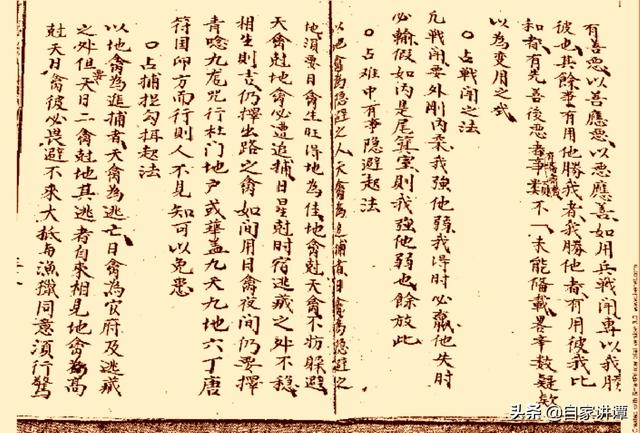 有善惡以善應惡以惡應善如用兵戰鬥專以我勝
彼也其餘事有用他勝我者我勝他者有用彼我比
和都有先善後惡者事類不一未能備載畧
以為變用之式
○占戰鬥之法
凡戰鬥要外剛内柔我強他弱我得时必贏他失时
必輸假如内是尾箕室則我強他弱也餘放此
○占难中有事隐避趋法
以地禽為隐避之人天禽為追捕者日禽為隐避之
地須要日禽生旺得地為佳地禽尅天禽不妨躲避
天禽尅地禽必遭追捕日星尅时宿逃藏之外不穏
相生則吉仍擇出路之禽如間用日禽夜間仍要擇
青唸九龙咒行杜門地户或華盖九天九地六丁唐
符国印方而行則人不見知可以免惡
○占捕捉勾捉趋法
以地禽為追捕者天禽為逃亡日禽為官府及逃藏
之外但要天日二禽尅地其逃者自來相見地禽為高
尅天日禽彼必畏避不來大抵与漁獵同意須行驚
头条 @自家讲谭